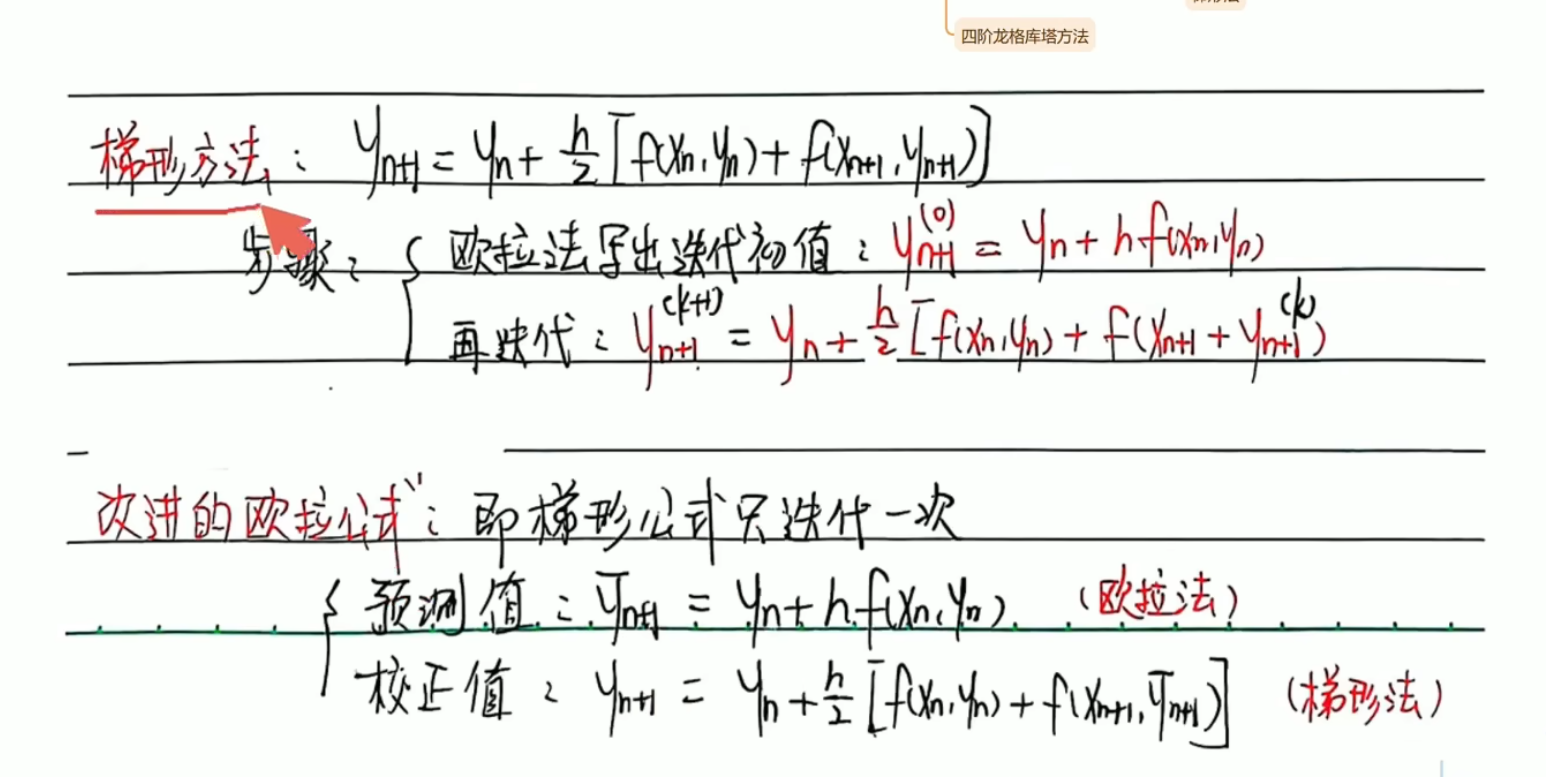 四阶龙格库塔方法
梯形方法: yₙ₊₁ = yₙ + h/2 [f(xₙ, yₙ) + f(xₙ₊₁, yₙ₊₁)]
步骤: { 欧拉法写出迭代初值: yₙ₊₁⁽⁰⁾ = yₙ + h f(xₙ, yₙ)
再迭代: yₙ₊₁⁽ᵏ⁺¹⁾ = yₙ + h/2 [f(xₙ, yₙ) + f(xₙ₊₁ + yₙ₊₁⁽ᵏ⁾)
改进的欧拉公式": 即梯形公式只迭代一次
{ 预测值: ȳₙ₊₁ = yₙ + h f(xₙ, yₙ). (欧拉法)
校正值: yₙ₊₁ = yₙ + h/2 [f(xₙ, yₙ) + f(xₙ₊₁, ȳₙ₊₁)] (梯形法)